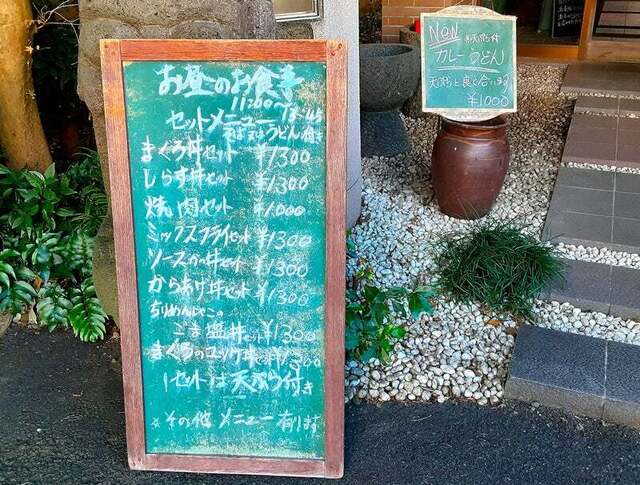 お昼のお食事
11:00〜
セットメニュー
そば又はうどん付き
まぐろ丼セット ¥1300
しらす丼セット ¥1300
焼肉セット ¥1000
ミックスフライセット ¥1300
ソースカツ丼セット ¥1300
からあげ丼セット ¥1300
ちりめんじゃこの
ごま盛丼セット ¥1300
まぐろのユッケ丼 ¥1300
セットは天ぷら付き
※その他メニュー有ります
New 天ぷら付
カレーうどん
天ぷらと良く合います
¥1000